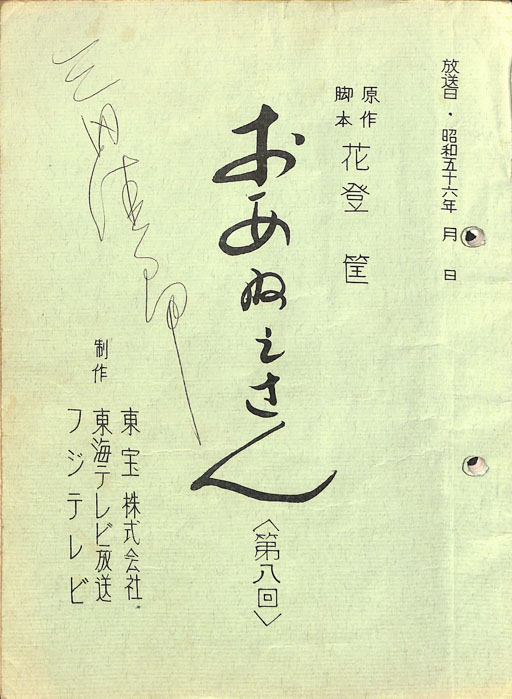 放送日・昭和五十六年 月 日
原作
脚本 花登 筐
おあねえさん
〈第八回〉
東宝株式会社
制作 東海テレビ放送
フジテレビ